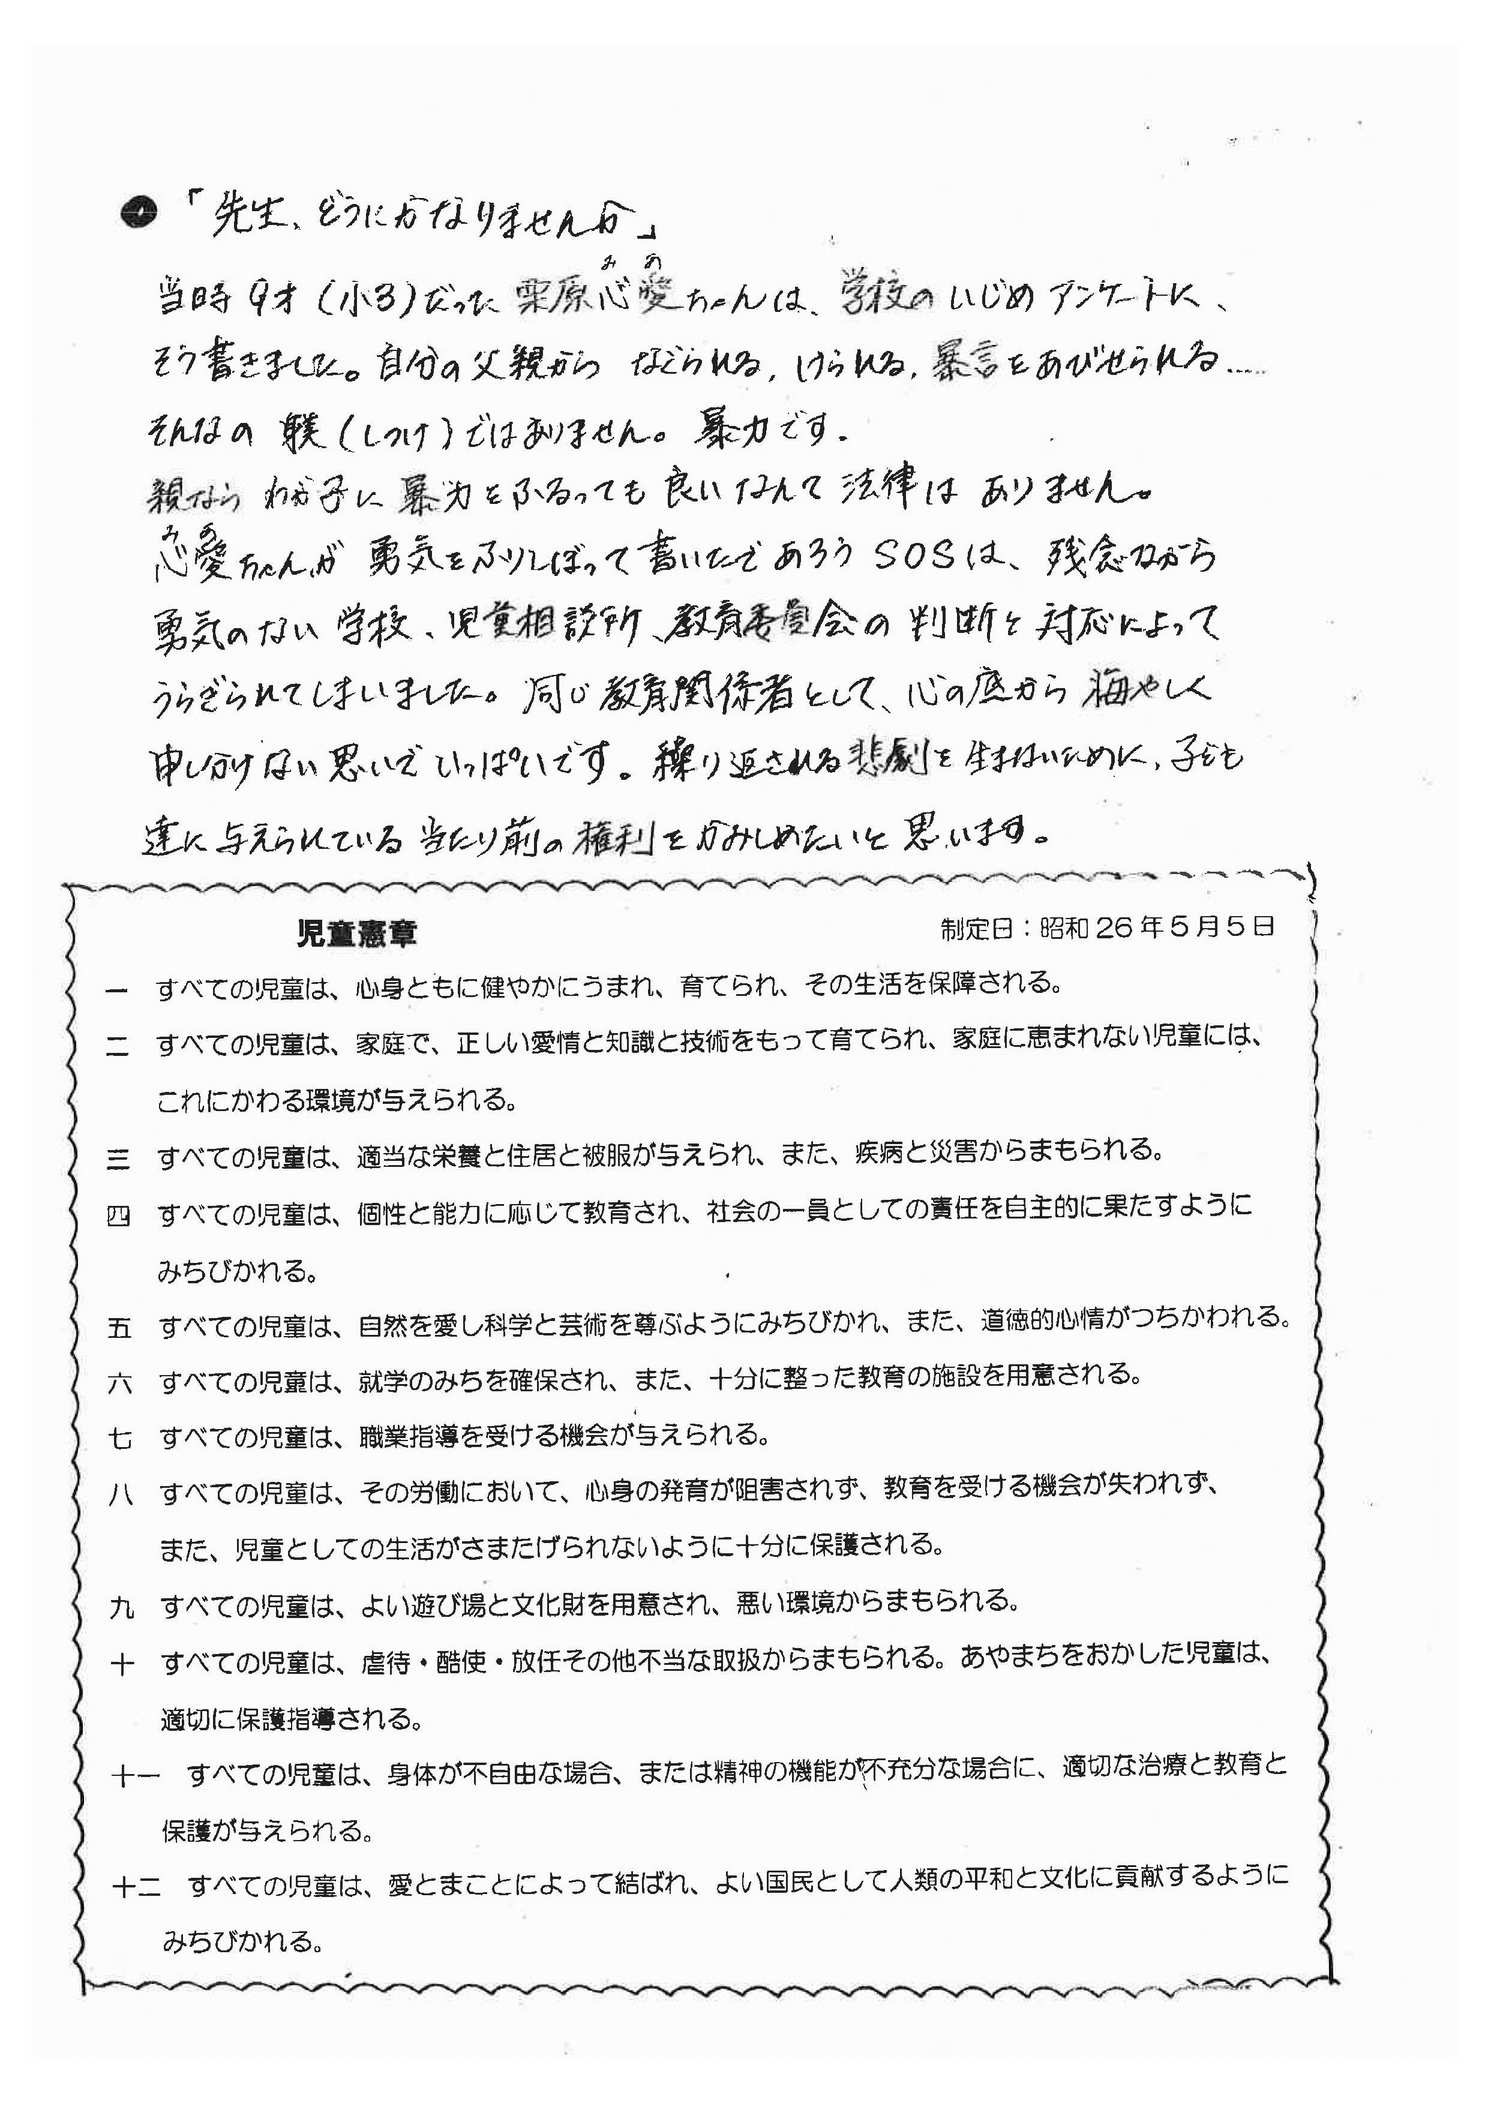 ●「先生、どうにかなりませんか」
当時9才(小3)だった栗原心愛ちゃんは、学校のいじめアンケートに、
みの
そう書きました。自分の父親からなぐられる、けられる、暴言をあびせられる……
そんなの躾(しつけ)ではありません。暴力です。
親ならわが子に暴力をふるっても良いなんて法律はありません。
みの
心愛ちゃんが勇気をふりしぼって書いたであろうSOSは、残念ながら
勇気のない学校、児童相談所、教育委員会の判断と対応によって
うらぎられてしまいました。同じ教育関係者として、心の底から悔やしく
申し分けない思いでいっぱいです。繰り返される悲劇を生まないために、子ども
達に与えられている当たり前の権利をかみしめたいと思います。
児童憲章 制定日：昭和26年5月5日
一 すべての児童は、心身ともに健やかにうまれ、育てられ、その生活を保障される。
二 すべての児童は、家庭で、正しい愛情と知識と技術をもって育てられ、家庭に恵まれない児童には、
これにかわる環境が与えられる。
三 すべての児童は、適当な栄養と住居と被服が与えられ、また、疾病と災害からまもられる。
四 すべての児童は、個性と能力に応じて教育され、社会の一員としての責任を自主的に果たすように
みちびかれる。
五 すべての児童は、自然を愛し科学と芸術を尊ぶようにみちびかれ、また、道徳的心情がつちかわれる。
六 すべての児童は、就学のみちを確保され、また、十分に整った教育の施設を用意される。
七 すべての児童は、職業指導を受ける機会が与えられる。
八 すべての児童は、その労働において、心身の発育が阻害されず、教育を受ける機会が失われず、
また、児童としての生活がさまたげられないように十分に保護される。
九 すべての児童は、よい遊び場と文化財を用意され、悪い環境からまもられる。
十 すべての児童は、虐待・酷使・放任その他不当な取扱からまもられる。あやまちをおかした児童は、
適切に保護指導される。
十一 すべての児童は、身体が不自由な場合、または精神の機能が不充分な場合に、適切な治療と教育と
保護が与えられる。
十二 すべての児童は、愛とまことによって結ばれ、よい国民として人類の平和と文化に貢献するように
みちびかれる。